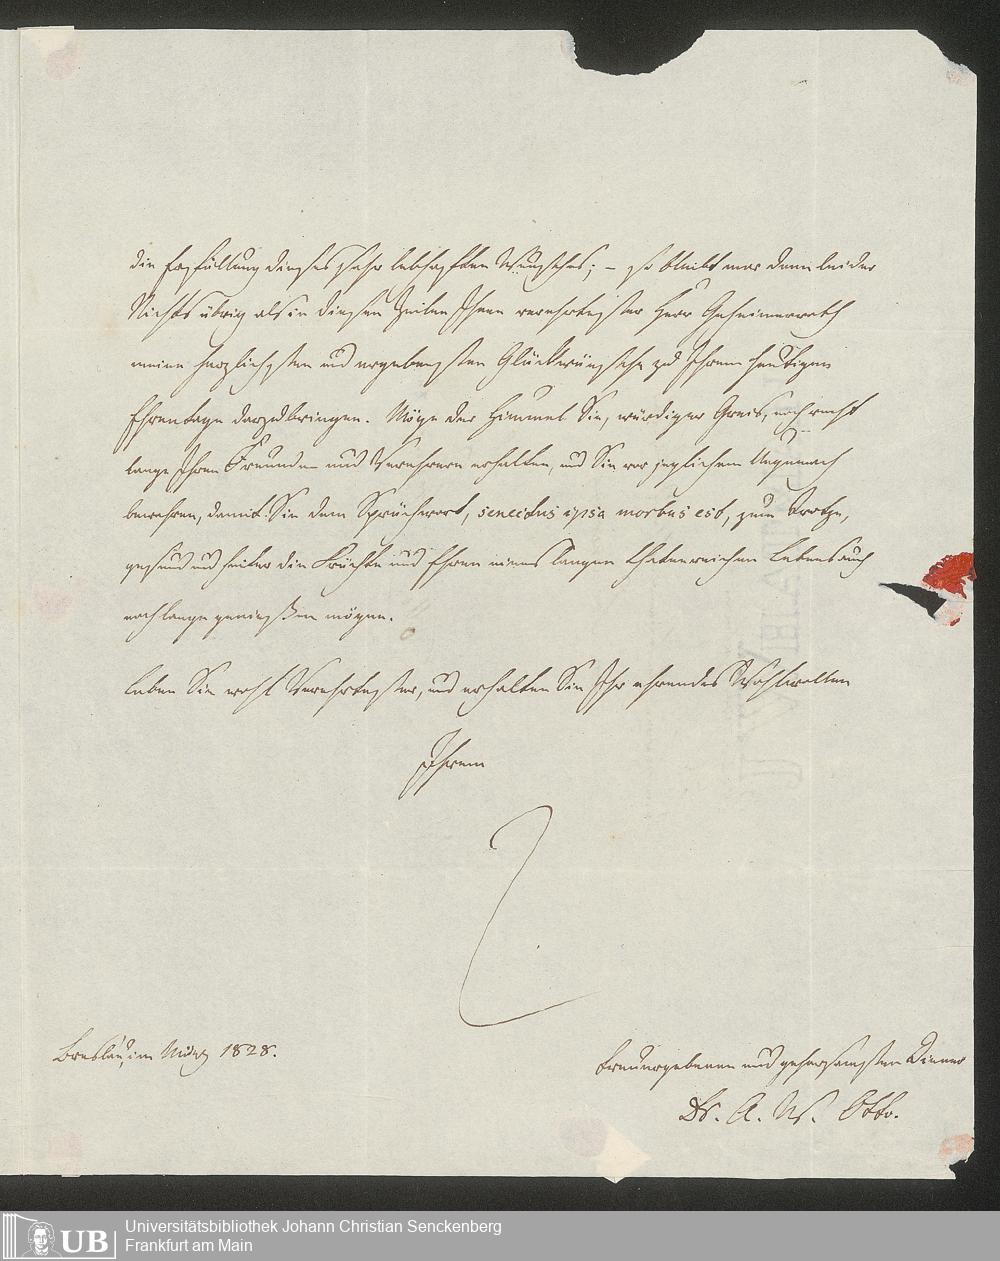 die Erfüllung dieses sehr lebhaften Wunsches; – so bleibt mir denn leider
Nichts übrig als in diesen Zeilen Ihnen verehrtester Herr Geheimerrath
meine herzlichsten und ergebensten Glückwünsche zu Ihrem heutigen
Ehrentage darzubringen. Möge der Himmel Sie, würdiger Greis, noch recht
lange Ihren Freunden und Verehrern erhalten, und Sie vor jeglichem Ungemach
bewahren, damit Sie dem Sprüchwort, senectus ipsa morbus est, zum Trotze,
gesund und heiter die Früchte und Ehren eines langen thatenreichen Lebens auch
noch lange genießen mögen.
Leben Sie wohl Verehrtester, und erhalten Sie Ihr ehrendes Wohlwollen
Ihrem
Breslau, im März 1828.
treuergebenen und gehorsamsten Diener
Dr. A. W. Otto.
UB
Universitätsbibliothek Johann Christian Senckenberg
Frankfurt am Main